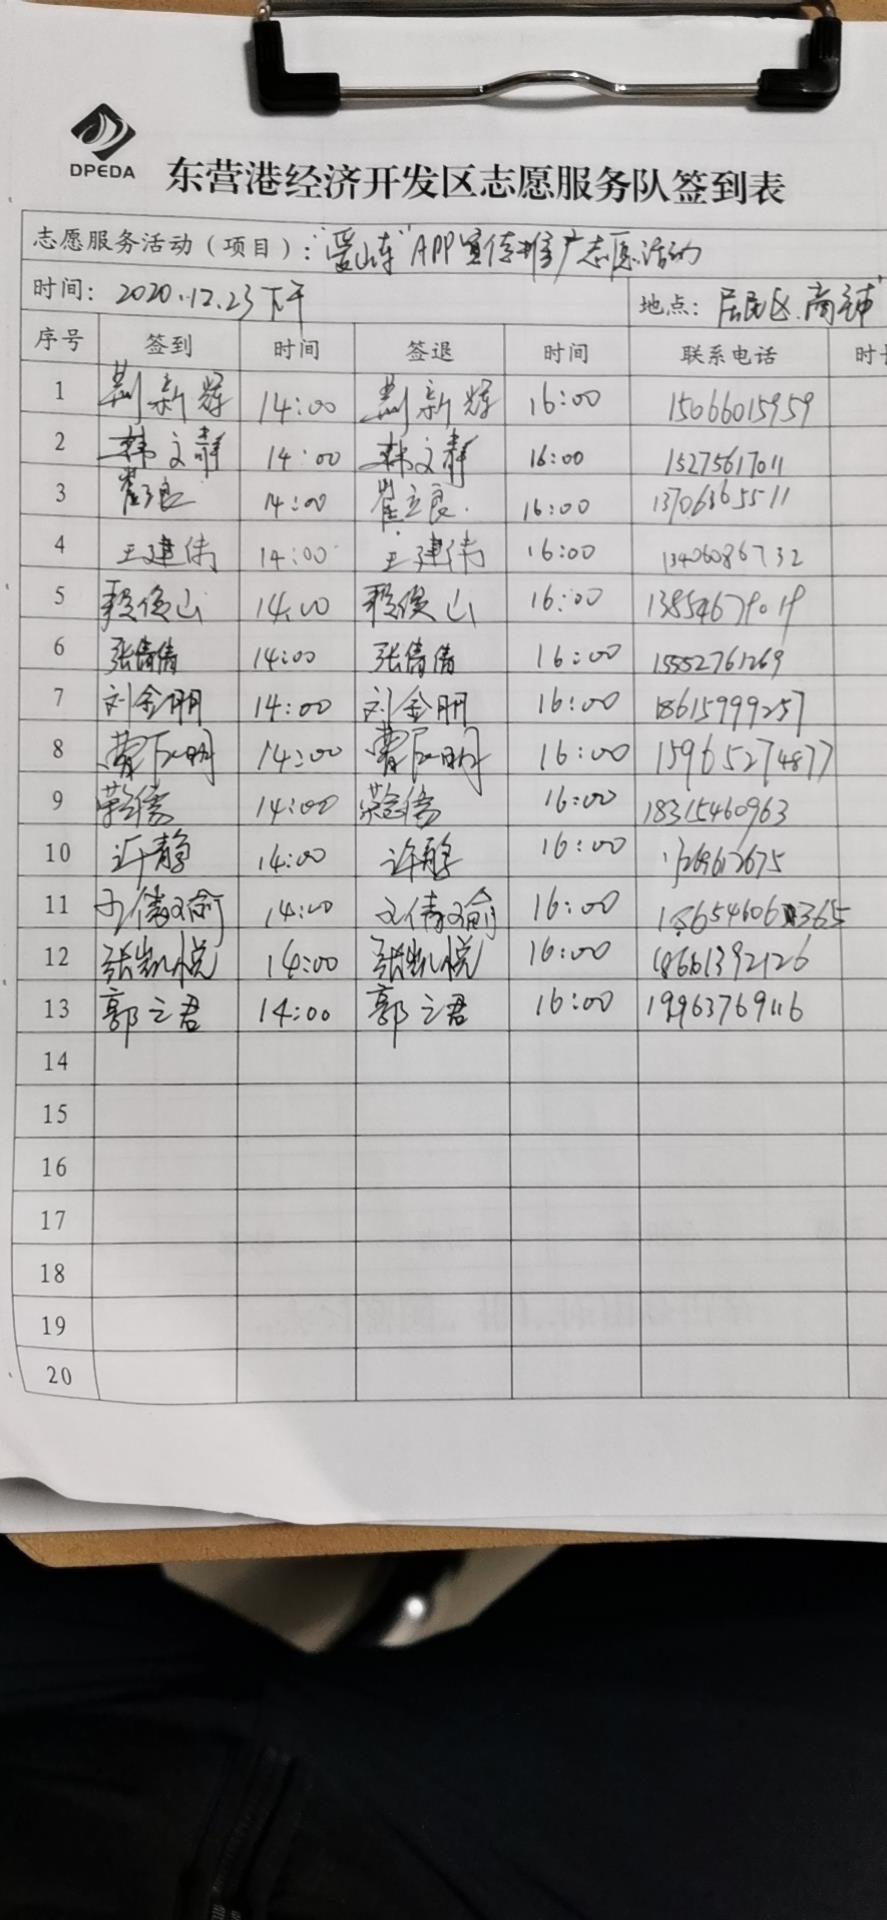 DPEDA
东营港经济开发区志愿服务队签到表
志愿服务活动（项目）：“爱山东”APP宣传推广志愿活动
时间：2020.12.23下午 地点：居民区.商铺
序号 签到 时间 签退 时间 联系电话 时
1 荆新辉 14:00 荆新辉 16:00 15066015959
2 韩文静 14:00 韩文静 16:00 15275617011
3 崔立良 14:00 崔立良 16:00 13706365511
4 王建伟 14:00 王建伟 16:00 13406086732
5 程俊山 14:00 程俊山 16:00 13854679019
6 张倩倩 14:00 张倩倩 16:00 15552761269
7 刘金朋 14:00 刘金朋 16:00 18615999257
8 14:00 16:00 15965274877
9 14:00 16:00 18315460963
10 许静 14:00 许静 16:00
11 14:00 16:00
12 张凯悦 14:00 张凯悦 16:00 18661392126
13 郭之君 14:00 郭之君 16:00 19963769116
14
15
16
17
18
19
20